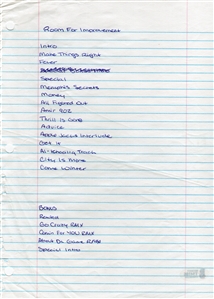 Room For Improvement
Intro
Make Things Right
Fever
Special
Memphis Secrets
Money
All Figured Out
Amir 902
Thrill is Gone
Advice
Interlude
Get It
City Is Mine
Come Winter
BONUS
Routes
Go Crazy RMX
Comin For YOU RMX
About Da Game RMX
Special Intro